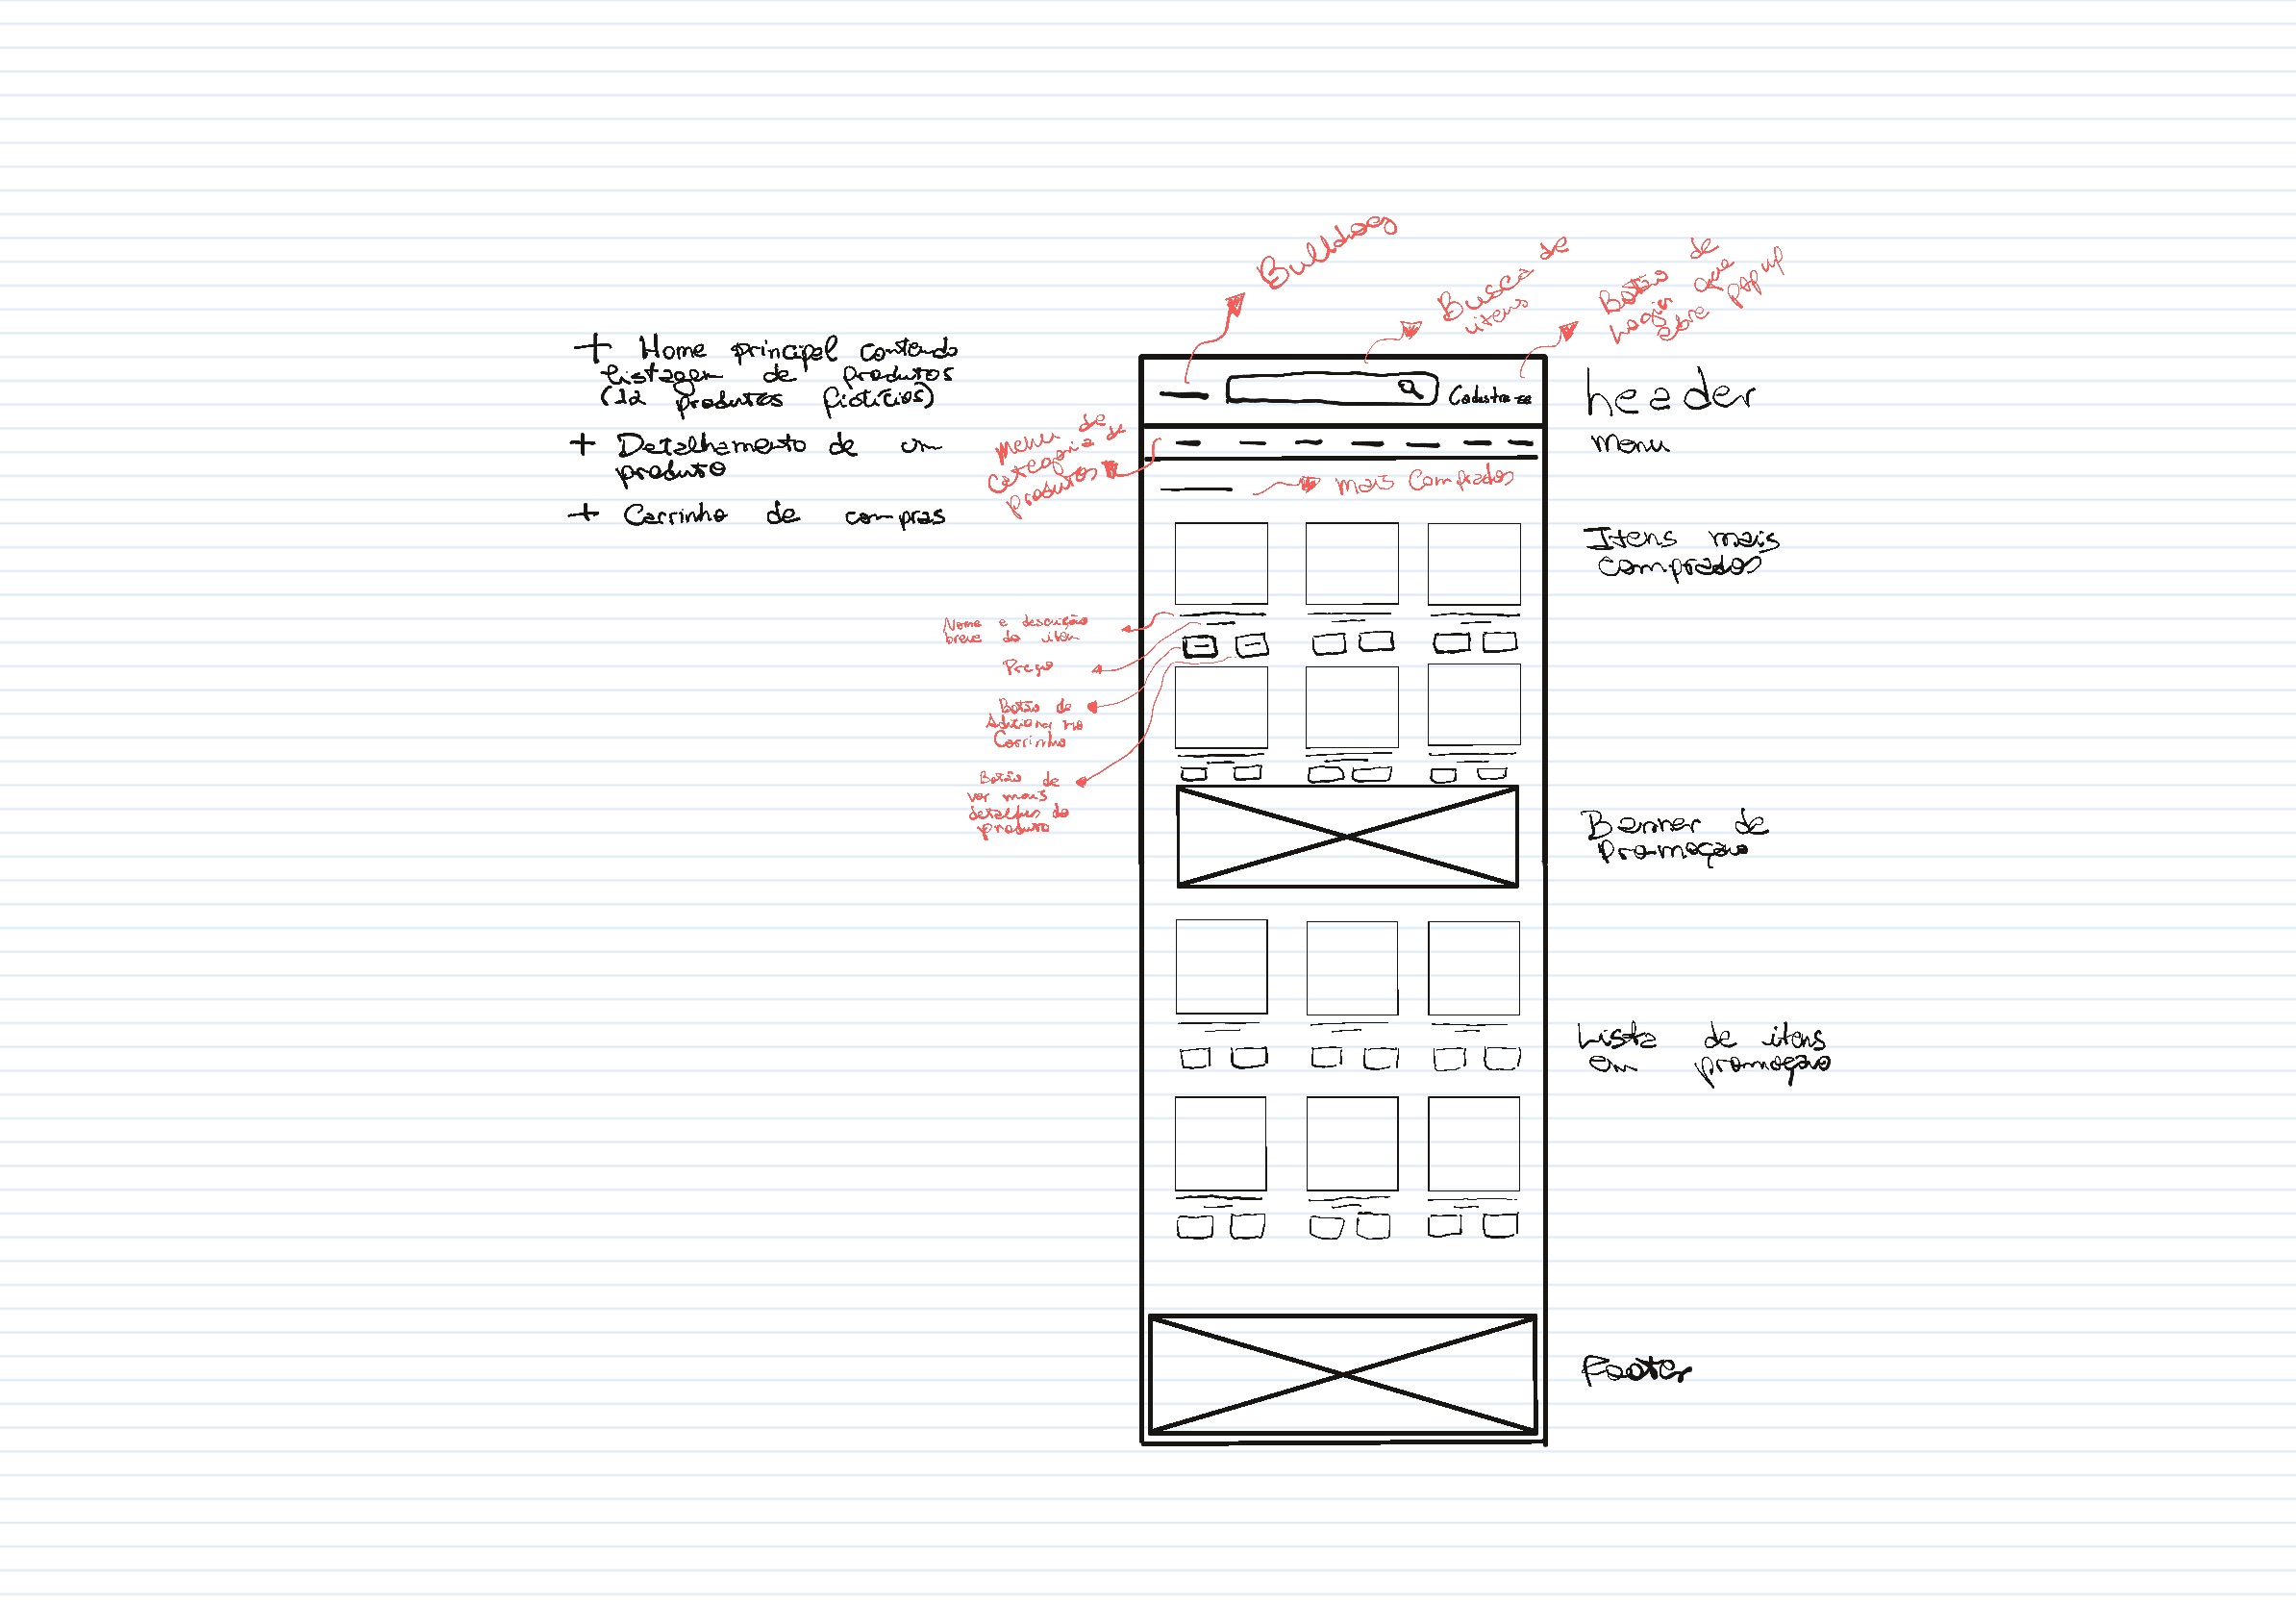 + Home principal contendo
listagem de produtos
(12 produtos fictícios)
+ Detalhamento de um
produto
+ Carrinho de compras
Bulldogs
Busca de
itens
Botão de
Login que
abre pop up
Cadastre-se
header
Menu de
categoria de
produtos
menu
mais comprados
Itens mais
comprados
Nome e descrição
breve do item
Preço
Botão de
Adicionar no
Carrinho
Botão de
ver mais
detalhes do
produto
Banner de
Promoção
Lista de itens
em promoção
Footer